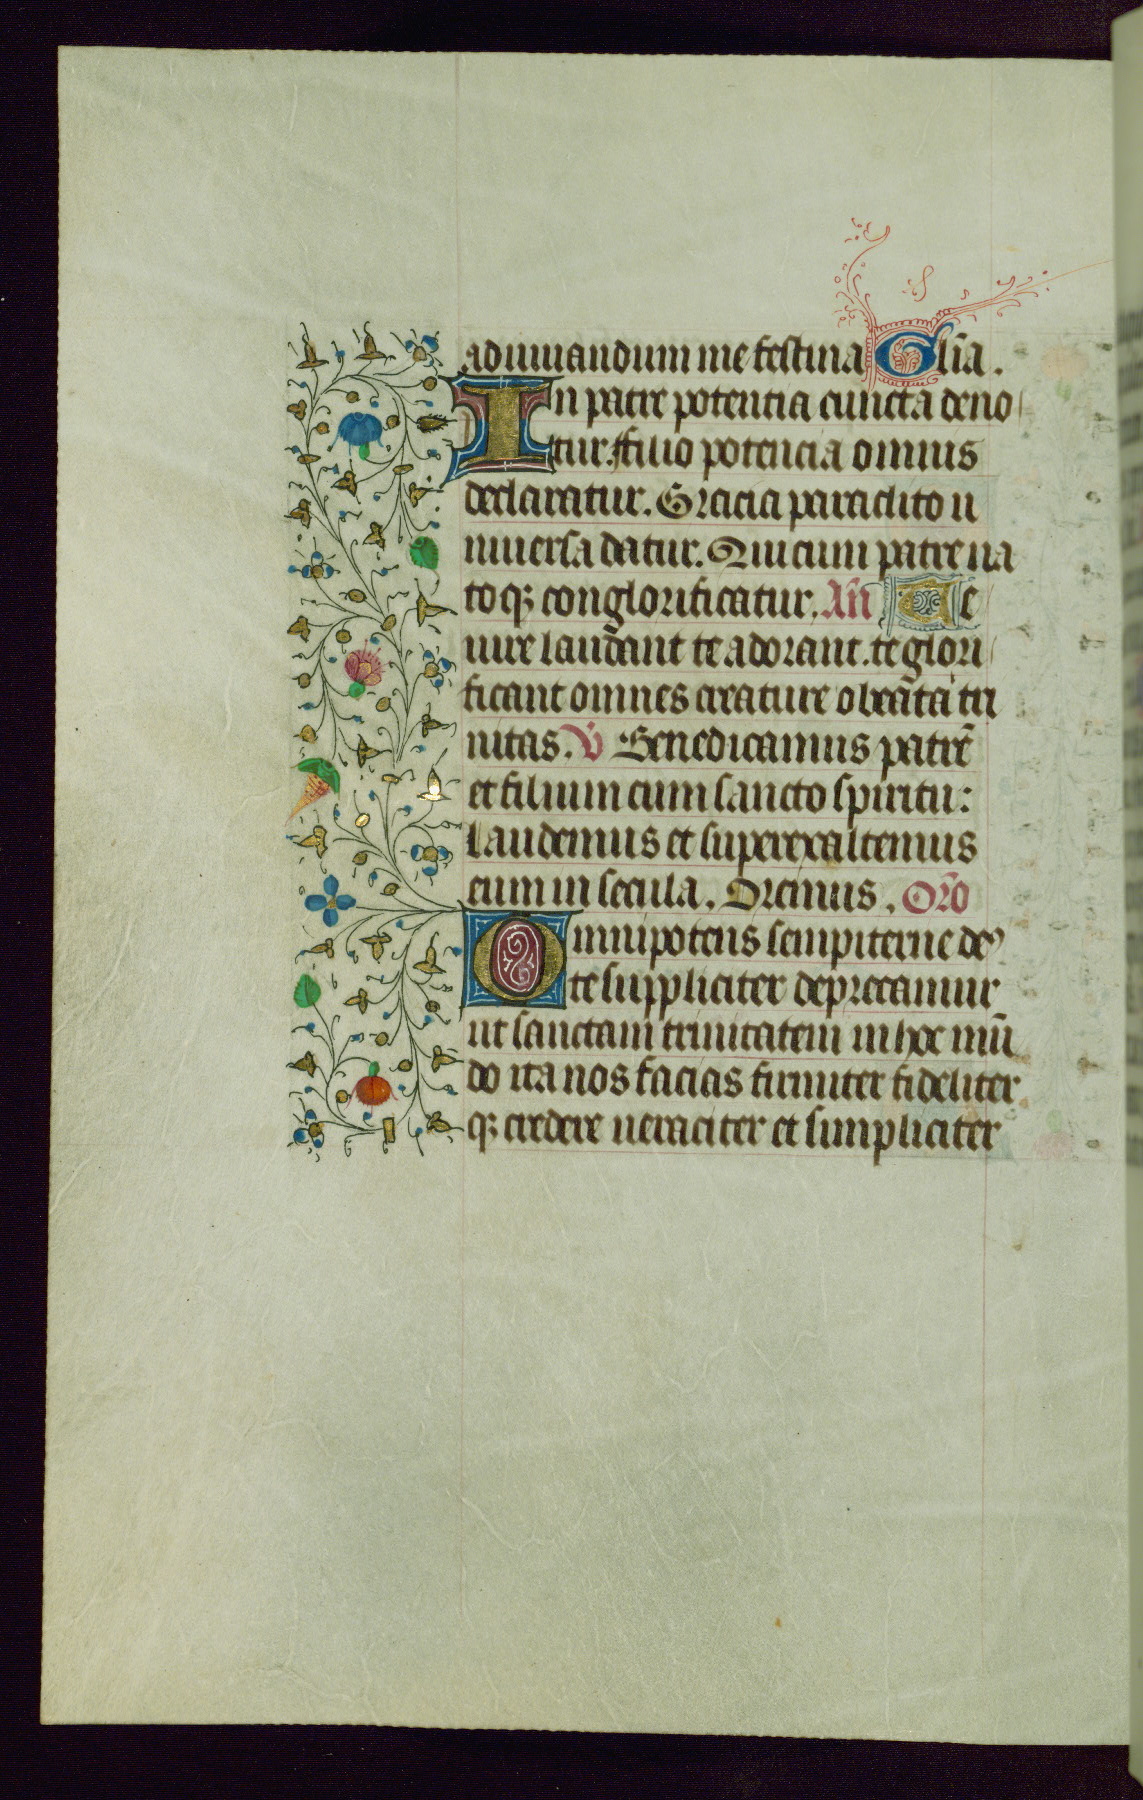 adiuuandum me festina Glīa.
In patre potentia cuncta deno
tur. ffilio potencia omnis
declaratur. Gracia paraclito u
niuersa datur. Qui cum patre na
toqꝫ conglorificatur. Añ Te
iure laudant te adorant. te glori
ficant omnes creature o beāta tri
nitas. V̄ Benedicamus patrē
et filium cum sancto spiritu:
Laudemus et superexaltemus
eum in secula. Oremus. Orō
Omnipotens sempiterne de⁹
te suppliciter deprecamur
ut sanctam trinitatem in hoc mū
do ita nos facias firmiter fideliter
qꝫ credere ueraciter et simpliciter